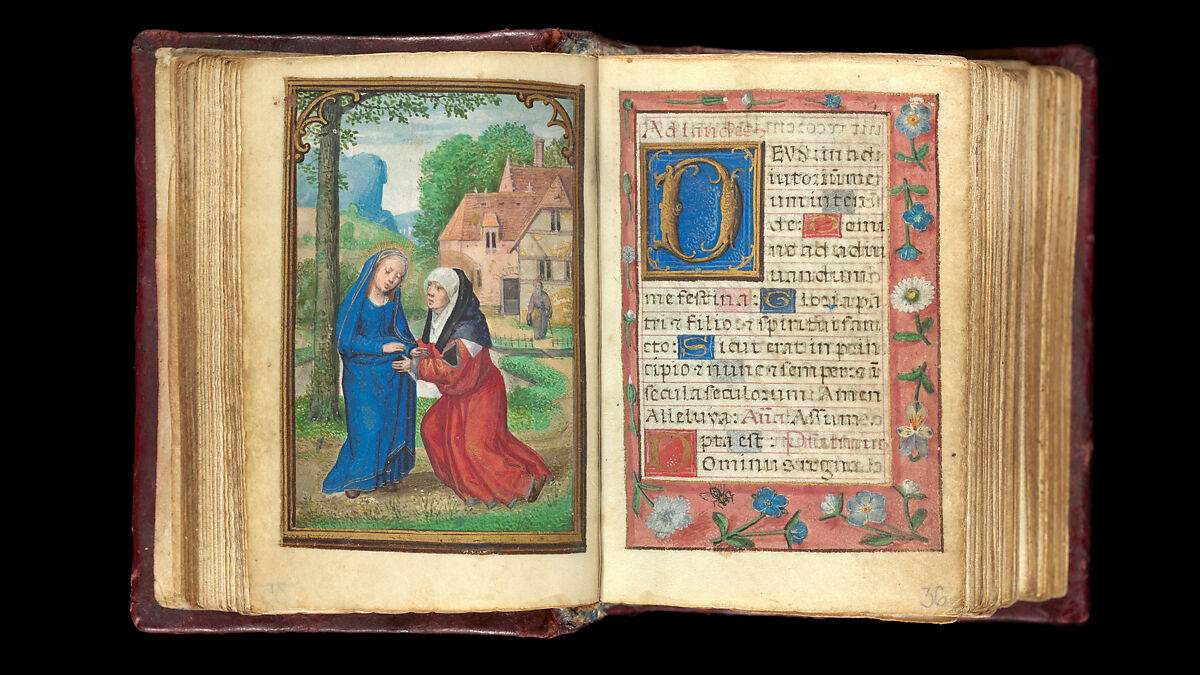 Ad laudes
DEUS in adi
utoriū me
um inten
de: Domi
ne ad adiu
uandum
me festina: Gloria pa
tri ⁊ filio: ⁊ spiritui san
cto: Sicut erat in prin
cipio ⁊ nunc ⁊ semper: ⁊ ī
secula seculorum: Amen
Alleluya: Añā: Assum
pta est:
Dominus regna
36